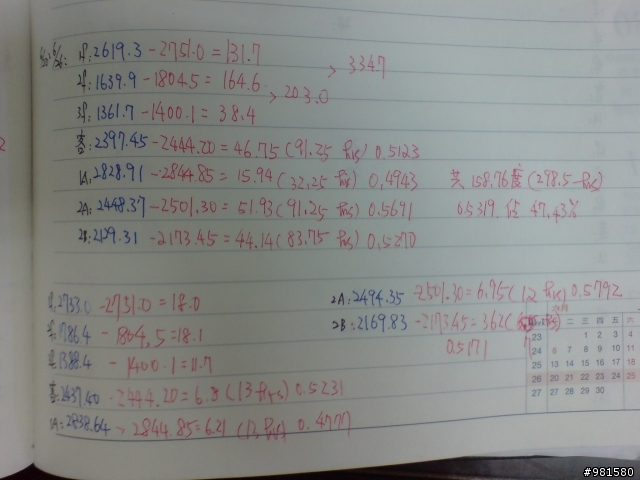 1f: 2619.3 - 2751.0 = 131.7
> 334.7
2f: 1639.9 - 1804.5 = 164.6
> 203.0
3f: 1361.7 - 1400.1 = 38.4
客: 2397.45 - 2444.20 = 46.75 (91.25 hrs) 0.5123
1A: 2828.91 - 2844.85 = 15.94 (32.25 hrs) 0.4943 共 158.76 度 (298.5 hrs)
2A: 2448.37 - 2501.30 = 51.93 (91.25 hrs) 0.5691 0.5319 佔 47.43%
2B: 2129.31 - 2173.45 = 44.14 (83.75 hrs) 0.5270
2733.0 - 2751.0 = 18.0
1786.4 - 1804.5 = 18.1
1388.4 - 1400.1 = 11.7
客: 2437.40 - 2444.20 = 6.8 (13 hrs) 0.5231
1A: 2838.64 > 2844.85 = 6.21 (13 hrs) 0.4777
2A: 2494.35 - 2501.30 = 6.95 (12 hrs) 0.5792
2B: 2169.83 - 2173.45 = 3.62 (
0.5171 7
二 三 四 五 六
23 1 2 3 4
24 6 7 8 9 10 11
25 13 14 15 16 17 18
26 20 21 22 23 24 25
27 27 28 29 30
#981580